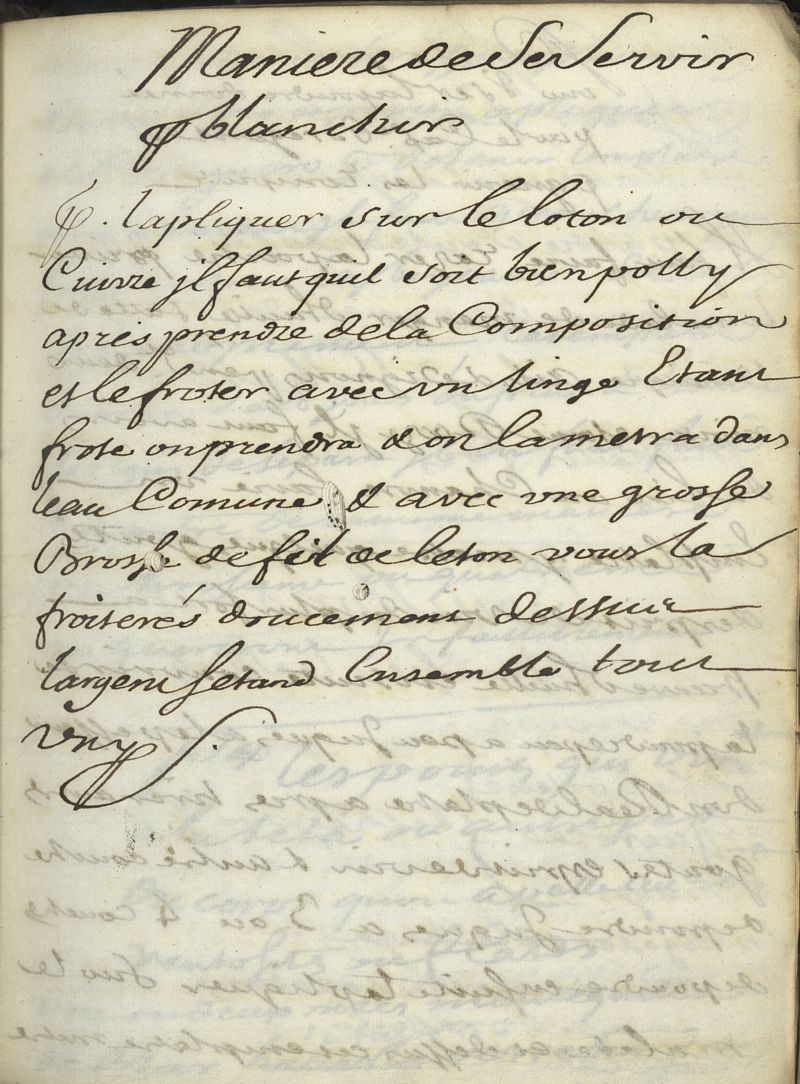 Maniere de Se Servir
pr blanchir
pr. lapliquer sur le loton ou
Cuivre jl faut quil soit bien polly
aprés prendre de la Composition
et le froter avec un linge Etant
froté on prendra & on la metra dans
leau Comune & avec une grosse
Brosse de fil de leton vous la
froiterés doucement dessus
largent Setand Ensemble tout
uny.